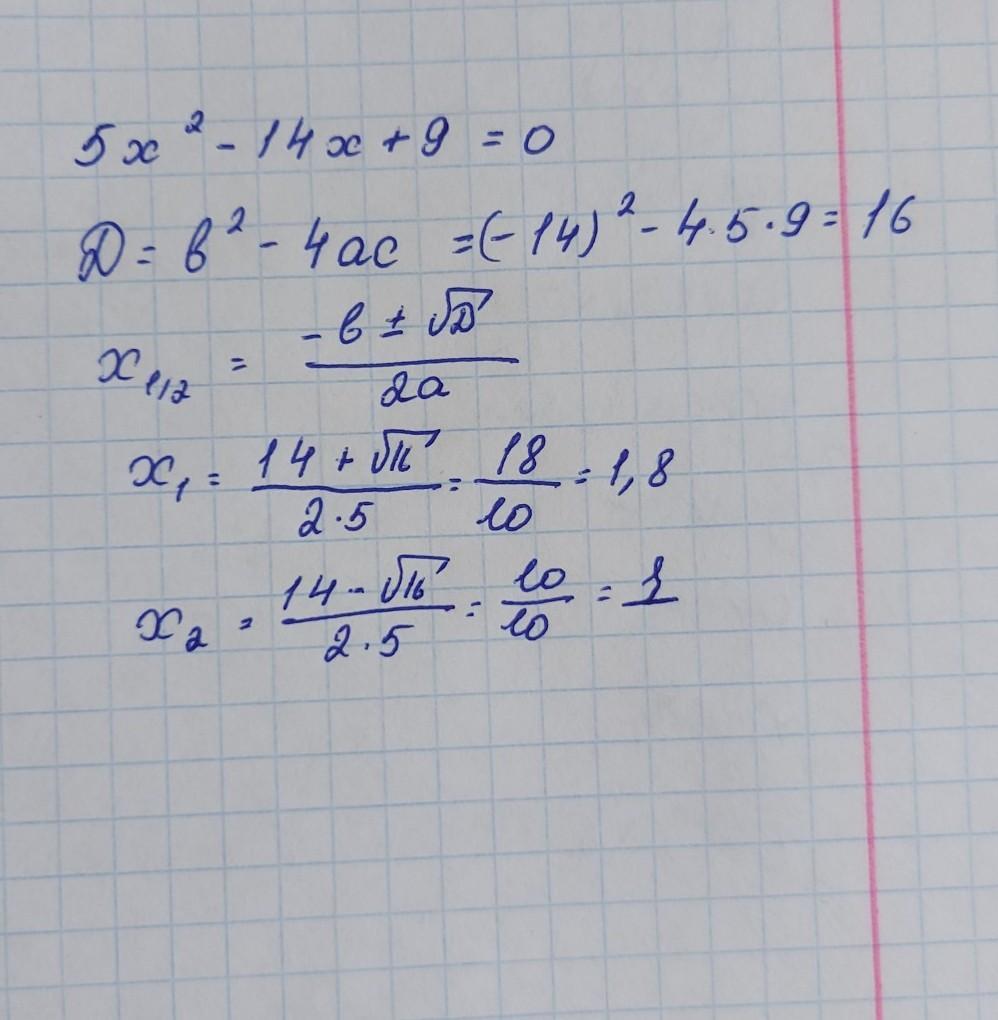 5x² - 14x + 9 = 0
Д = b² - 4ac = (-14)² - 4·5·9 = 16
x₁,₂ = (-b ± √Д) / 2a
x₁ = (14 + √16) / 2·5 = 18/10 = 1,8
x₂ = (14 - √16) / 2·5 = 10/10 = 1